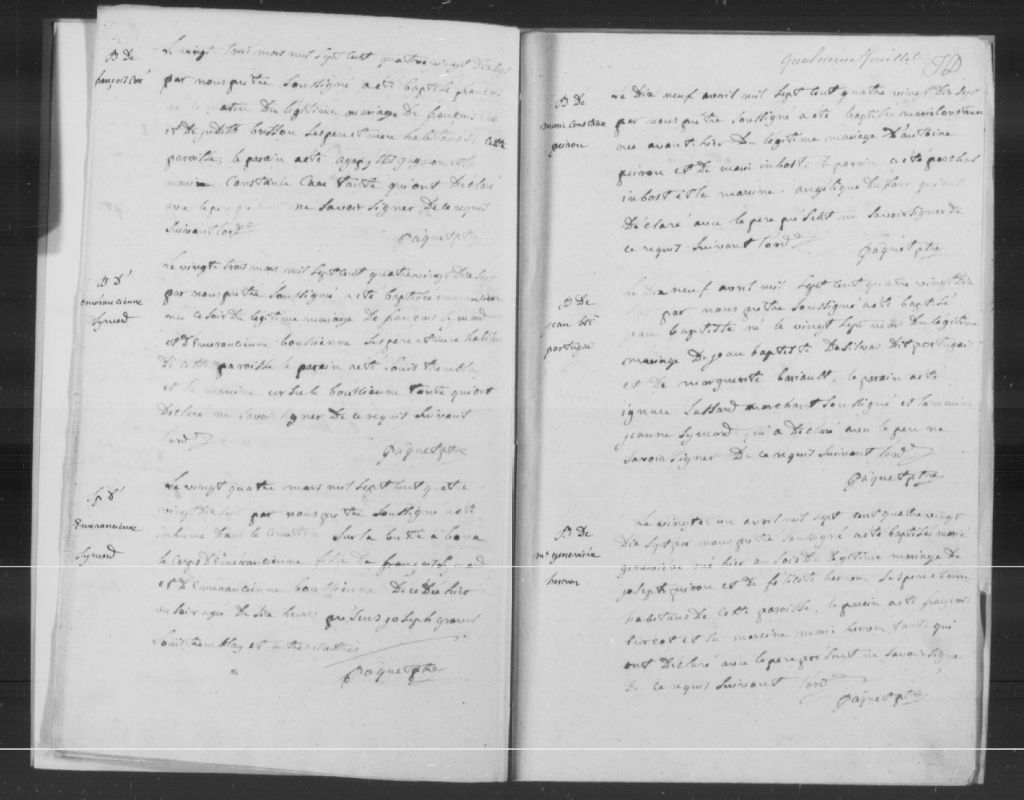 B De
françois Cai
Le vingt trois mars mil sept cent quatre vingt Dix sept
par nous prêtre Soussigné a eté baptisé françois
né le matin Du légitime mariage De françois Cai
et De judith busson Ses pere et mere habitans De Cette
paroisse, le parain a eté gagnon et la
maraine Constance Caie tante qui ont Déclaré
avec le pere ne Savoir Signer De ce requis
Suivant l'ord
Pâquet ptre
B D'
emérancienne
Symard
Le vingt trois mars mil sept cent quatre vingt Dix sept
par nous prêtre Soussigné a eté baptisée emerancienne
née ce Soir Du légitime mariage De françois Symard
et D'Emerancienne boussienne Ses pere et mere habitans
De Cette paroisse le parain a eté Louis tremblay
et la maraine ursule boussienne tante qui ont
Déclaré ne Savoir Signer De ce requis Suivant
l'ord
Pâquet ptre
Sp D'
Emerancienne
Symard
Le vingt quatre mars mil sept cent quatre
vingt Dix sept par nous prêtre Soussigné a eté
inhumé Dans le Cimetière Sur la bute à bona
le Corps D'Emérancienne fille De françois Symard
et D'Emerancienne boussienne Décédée hier
au Soir agé De Dix heures présens joseph gravel
Louis tremblay et autres
Pâquet ptre
Quatrieme feuillet
B De
marie constance
peiron
Le Dix neuf avril mil sept cent quatre vingt Dix sept
par nous prêtre Soussigné a eté baptisée marie constance
née avant hier Du légitime mariage D'antoine
peiron et De marie imbost, le parain a eté paschal
imbost et la maraine angelique Dufour qui ont
Déclaré avec le pere présent ne Savoir Signer De
ce requis Suivant l'ord
Pâquet ptre
B De
jean bte
portugai
Le Dix neuf avril mil sept cent quatre vingt Dix
sept par nous prêtre Soussigné a eté baptisé
jean baptiste né le vingt sept mars Du légitime
mariage De jean baptiste Dasilva Dit portugai
et De marguerite bariault, le parain a eté
ignace Lassard marchant Soussigné et la maraine
jeanne Symard qui a Déclaré avec le pere ne
Savoir Signer De ce requis Suivant l'ord
Pâquet ptre
B De
me genevieve
hervon
Le vingt et un avril mil sept cent quatre vingt
Dix Sept par nous prêtre Soussigné a eté baptisée marie
genevieve né hier au Soir Du légitime mariage De
joseph peiron et De félicité hervon Ses pere et mere
habitans De Cette paroisse, le parain a eté françois
turcot et la maraine marie hervon tante qui
ont Déclaré avec le pere présent ne Savoir Signer
De ce requis Suivant l'ord
Pâquet ptre